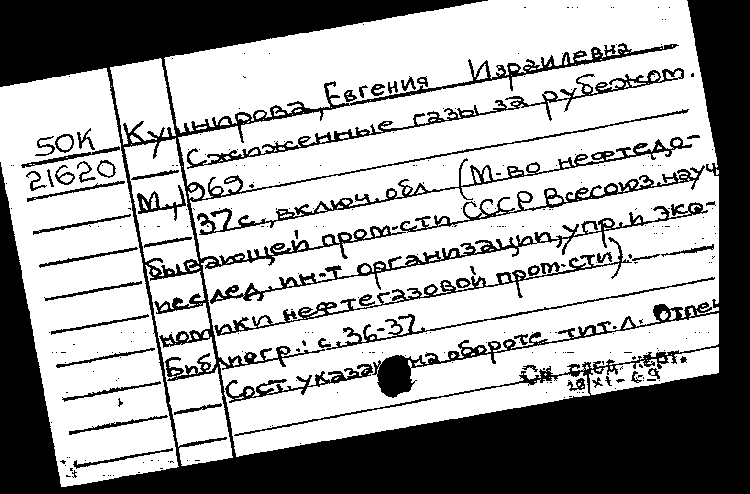 50К
21620
Кушнирова, Евгения Израилевна
Сжиженные газы за рубежом.
М., 1969.
37с., включ. обл. (М-во нефтедо-
бывающей пром-сти СССР. Всесоюз. науч
исслед. ин-т организации, упр. и эко-
номики нефтегазовой пром-сти).
Библиогр.: с. 36-37.
Сост. указан на обороте тит. л. Отпеч
См. след. карт.
28/XI-69